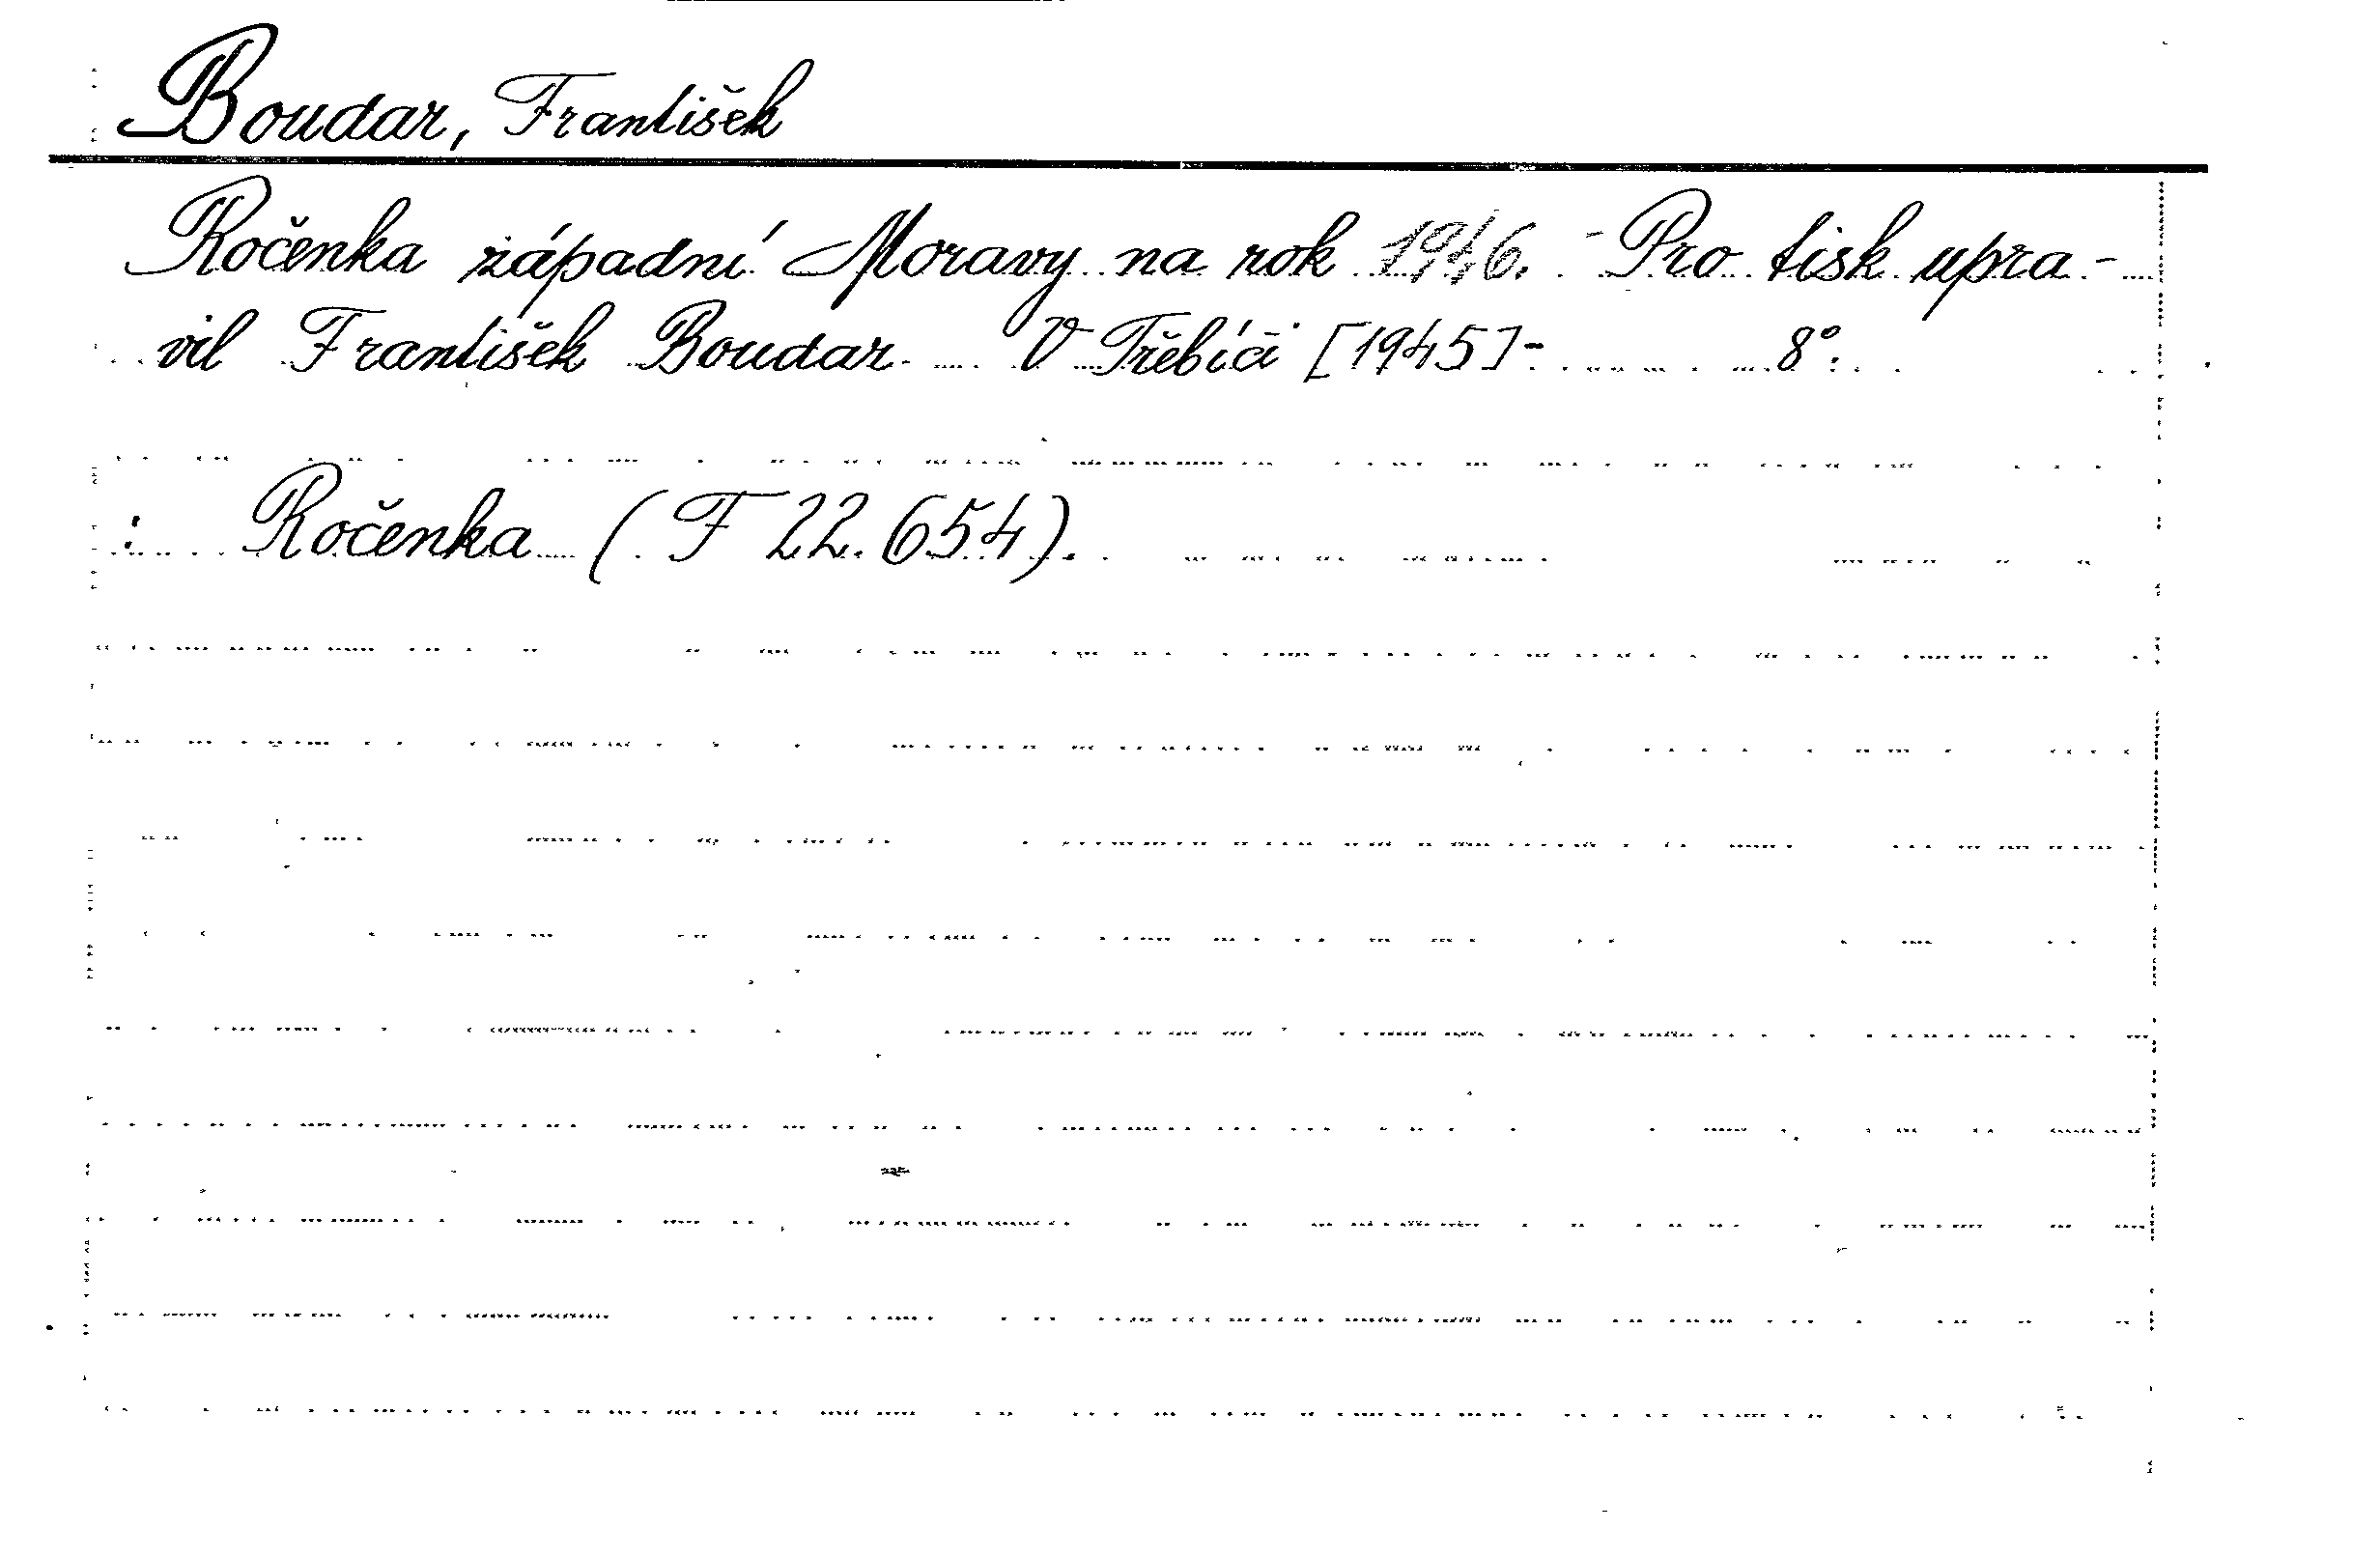 Boudar, František
Ročenka západní Moravy na rok 1946. - Pro tisk upra-
vil František Boudar V Třebíči [1945]- 8°.
: Ročenka (F 22.654).